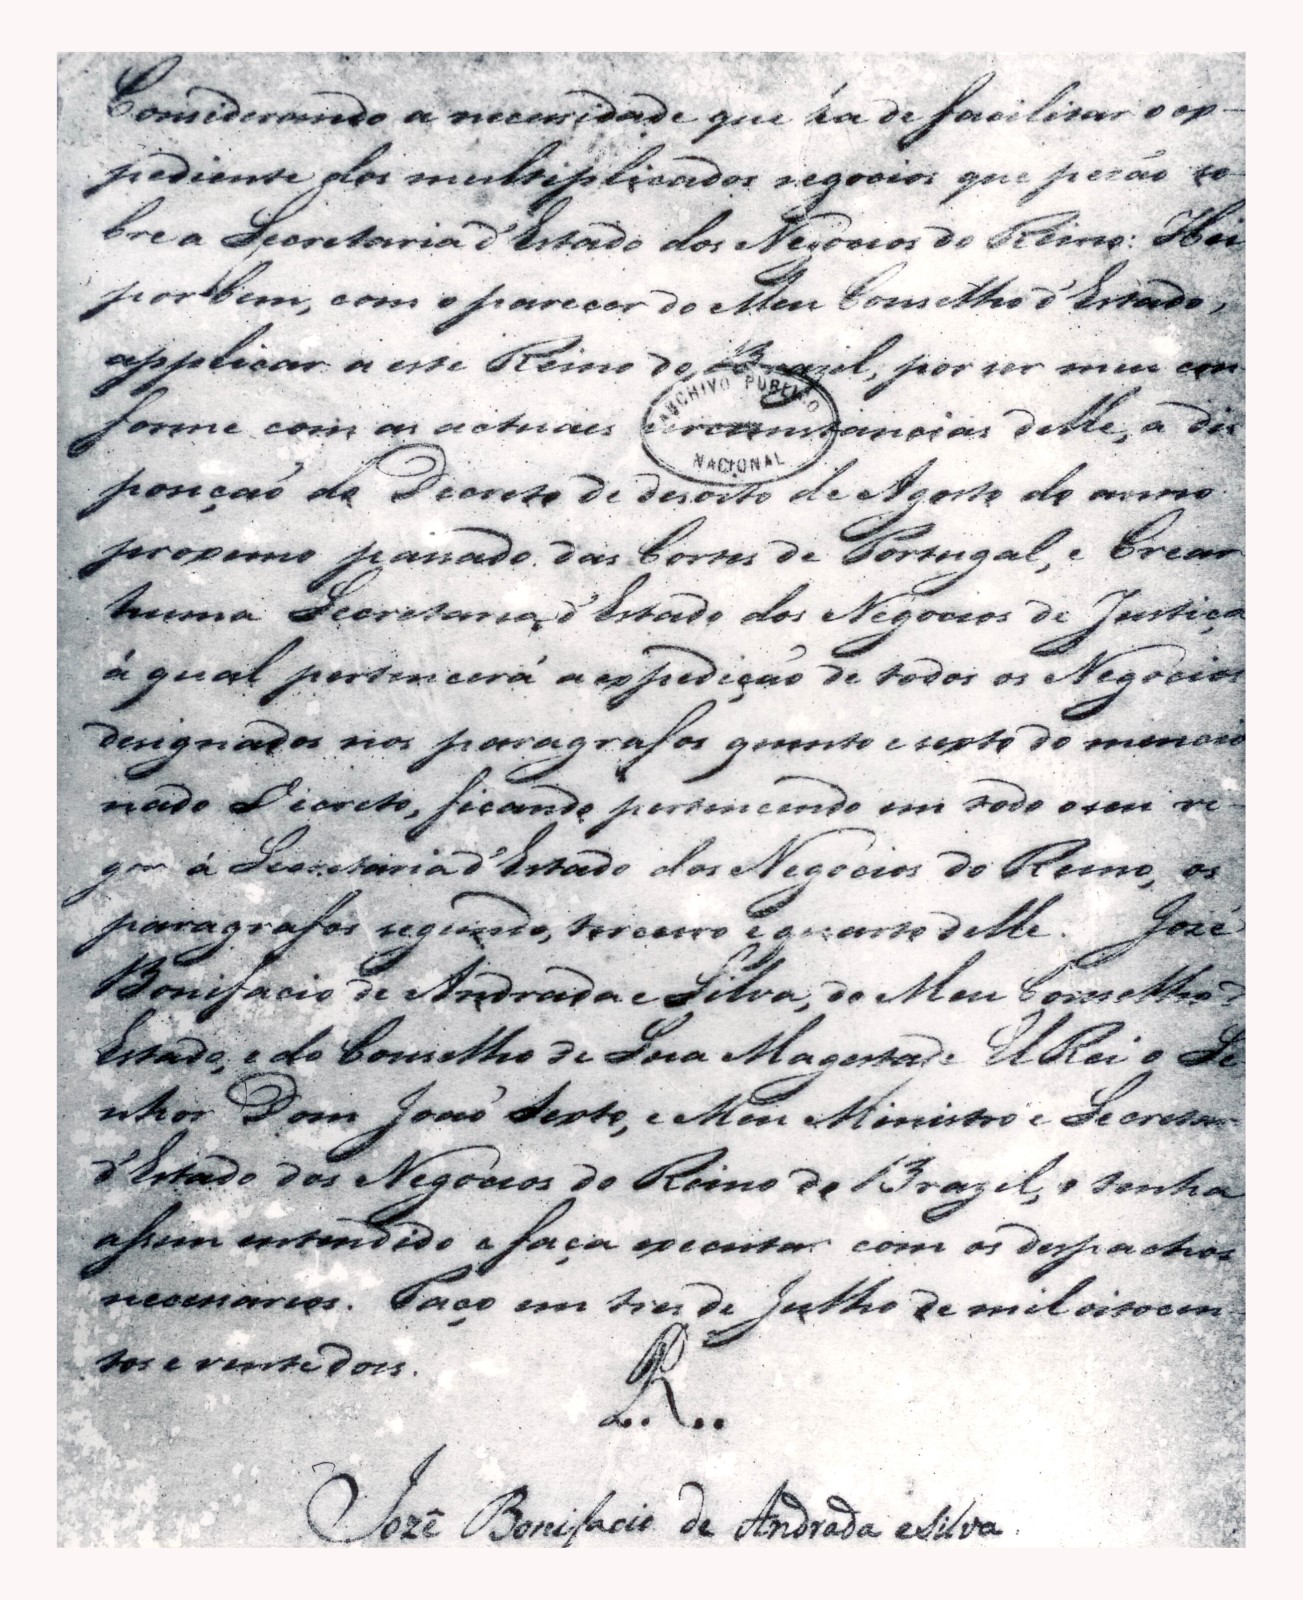 Considerando a necessidade que ha de facilitar o ex-
pediente dos multiplicados negocios que pezão so-
bre a Secretaria d'Estado dos Negocios do Reino: Hei
por bem, com o parecer do Meu Conselho d'Estado,
applicar a este Reino do Brazil, por ser meu con
forme com as actuaes circumstancias delle, a dis
ARCHIVO PUBLICO
NACIONAL
posição do Decreto de desoito de Agosto do anno
proximo passado das Cortes de Portugal, e Crear
huma Secretaria d'Estado dos Negocios de Justiça
á qual pertencerá a expedição de todos os Negocios
designados nos paragrafos quinto e sexto do mencio
nado Decreto, ficando pertencendo em todo o seu vi-
gor á Secretaria d'Estado dos Negocios do Reino, os
paragrafos segundo, terceiro e quarto delle. José
Bonifacio de Andrada e Silva, do Meu Conselho d'
Estado, e do Conselho de Sua Magestade El Rei o Se
nhor Dom João Sexto, e Meu Ministro e Secretar
d'Estado dos Negocios do Reino do Brazil, o tenha
assim entendido e faça executar com os despachos
necessarios. Paço em tres de Julho de mil oitocen-
tos e vinte dois.
R..
Jozé Bonifacio de Andrada e Silva.